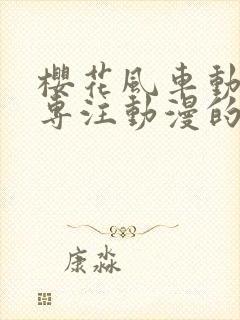 櫻花風車動
專注動漫的
康淼